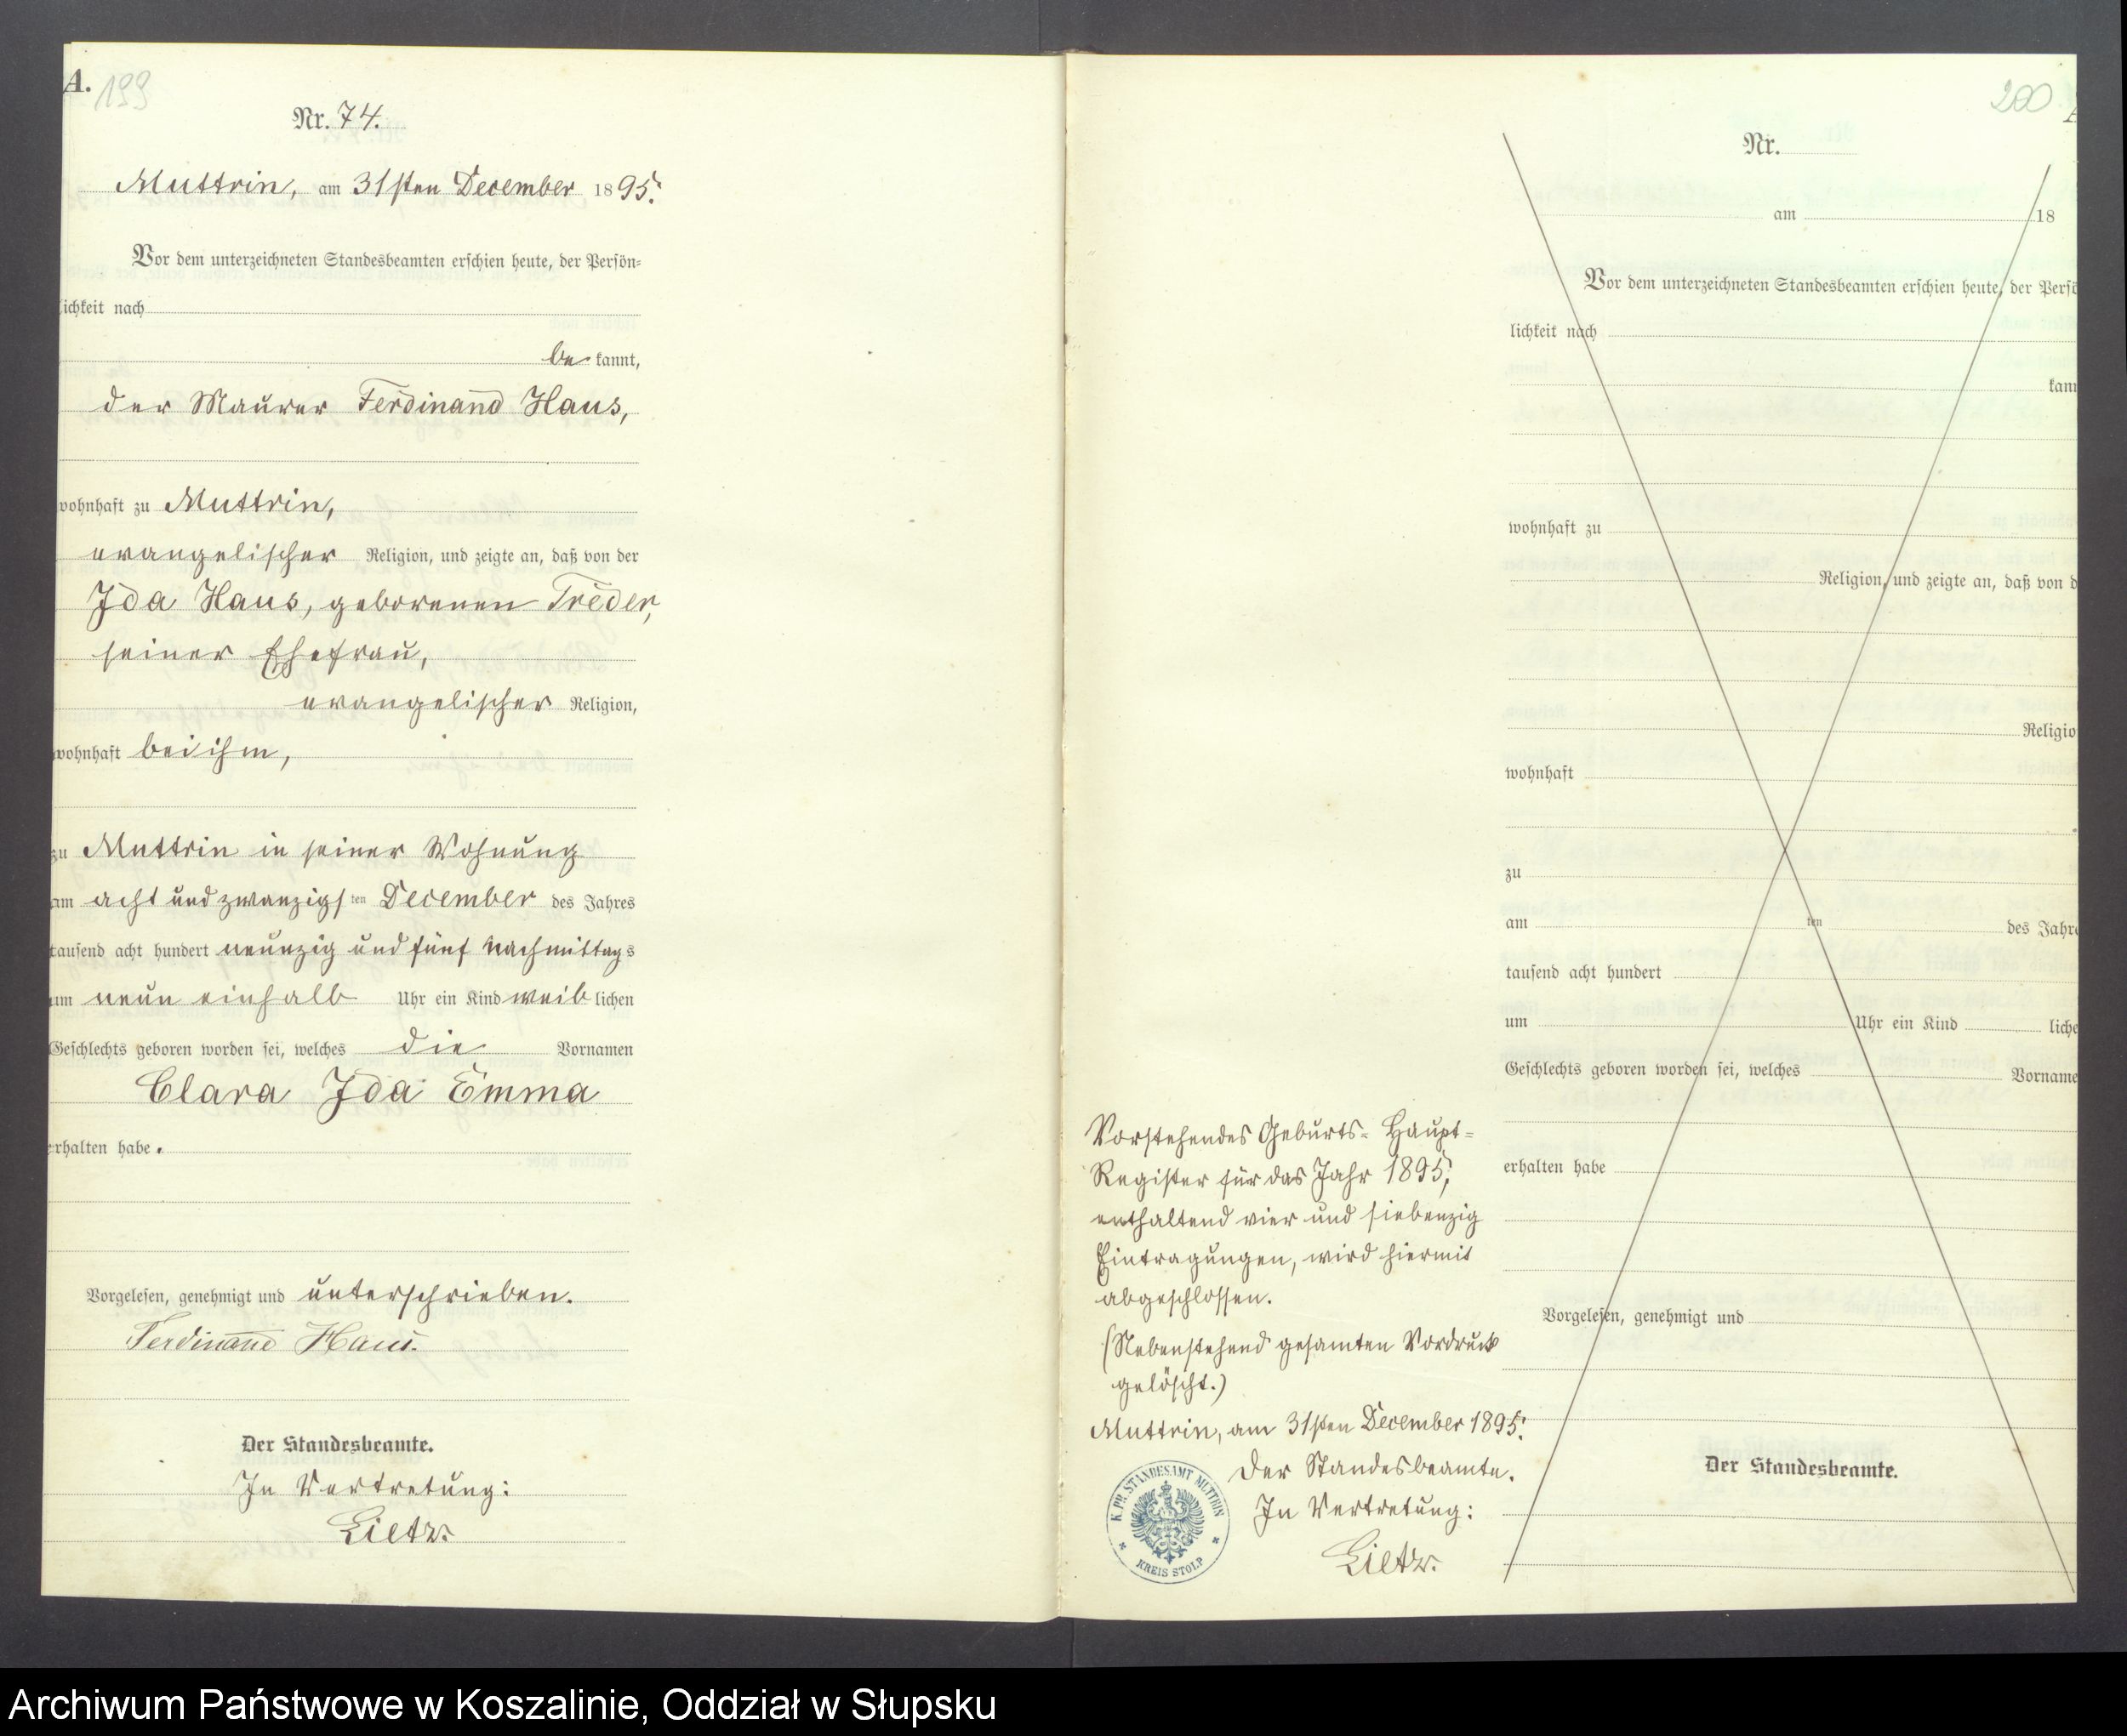 A.
199
Nr. 74.
Muttrin, am 31sten December 1895.
Vor dem unterzeichneten Standesbeamten erschien heute, der Persön=
lichkeit nach
be kannt,
der Maurer Ferdinand Haus,
wohnhaft zu Muttrin,
evangelischer Religion, und zeigte an, daß von der
Ida Haus, geborenen Treder,
seiner Ehefrau,
evangelischer Religion,
wohnhaft bei ihm,
zu Muttrin in seiner Wohnung
am acht und zwanzigsten December des Jahres
tausend acht hundert neunzig und fünf Nachmittags
um neun einhalb Uhr ein Kind weiblichen
Geschlechts geboren worden sei, welches die Vornamen
Clara Ida Emma
erhalten habe.
Vorgelesen, genehmigt und unterschrieben.
Ferdinand Haus.
Der Standesbeamte.
In Vertretung:
Lietz.
Vorstehendes Geburts- Haupt=
Register für das Jahr 1895,
enthaltend vier und siebenzig
Eintragungen, wird hiermit
abgeschlossen.
(Nebenstehend gesamten Vordruck
gelöscht.)
Muttrin, am 31sten December 1895.
Der Standesbeamte.
In Vertretung:
Lietz.
K. PR. STANDESAMT MUTTRIN
KREIS STOLP
200
Nr.
am 18
Vor dem unterzeichneten Standesbeamten erschien heute, der Persö
lichkeit nach
kann
wohnhaft zu
Religion, und zeigte an, daß von d
Religio
wohnhaft
zu
am ten des Jahre
tausend acht hundert
um Uhr ein Kind liche
Geschlechts geboren worden sei, welches Vorname
erhalten habe
Vorgelesen, genehmigt und
Der Standesbeamte.
Archiwum Państwowe w Koszalinie, Oddział w Słupsku